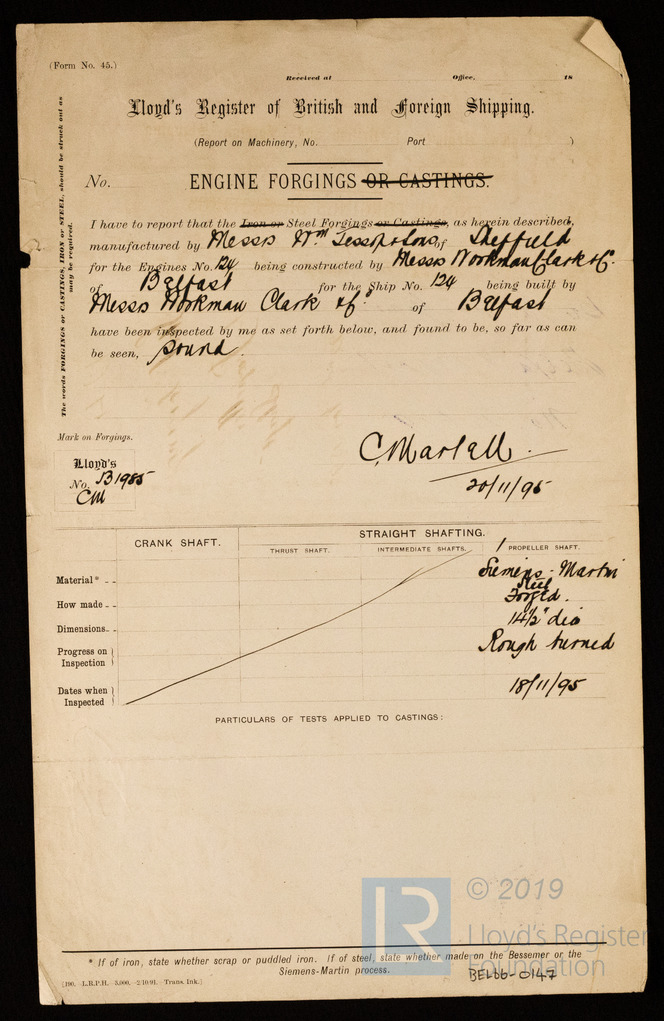 (Form No. 45.)
Received at Office, 18
Lloyd's Register of British and Foreign Shipping.
(Report on Machinery, No. Port )
No. ENGINE FORGINGS OR CASTINGS.
I have to report that the Iron or Steel Forgings or Castings, as herein described,
manufactured by Messrs Wm Jessop & Sons of Sheffield
for the Engines No. 124 being constructed by Messrs Workman Clark & Co
of Belfast for the Ship No. 124 being built by
Messrs Workman Clark & Co of Belfast
have been inspected by me as set forth below, and found to be, so far as can
be seen, sound.
The words FORGINGS or CASTINGS, IRON or STEEL, should be struck out as
may be required.
Mark on Forgings.
Lloyd's
No. B1985
CM
C. Martell.
20/11/95
CRANK SHAFT. STRAIGHT SHAFTING.
THRUST SHAFT. INTERMEDIATE SHAFTS. 1 PROPELLER SHAFT.
Material* Siemens-Martin
Steel
How made Forged.
Dimensions 14½" dia
Progress on Inspection Rough turned
Dates when Inspected 18/11/95
PARTICULARS OF TESTS APPLIED TO CASTINGS:
© 2019
Lloyd's Register
Foundation
* If of iron, state whether scrap or puddled iron. If of steel, state whether made on the Bessemer or the
Siemens-Martin process.
BEL66-0147
[190. L.R.P.H. 5,000. 2/10/91. Trans. Ink.]